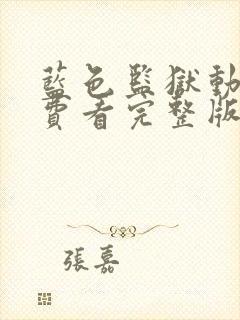 藍色監獄動
費看完整版
張嘉